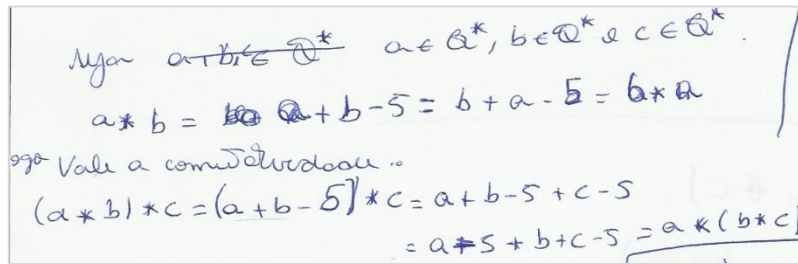 Sejam a∈ Q*, b∈Q* e c ∈ Q*.
a * b = a + b - 5 = b + a - 5 = b * a
logo Vale a comutatividade.
(a * b) * c = (a + b - 5) * c = a + b - 5 + c - 5
= a - 5 + b + c - 5 = a * (b * c)